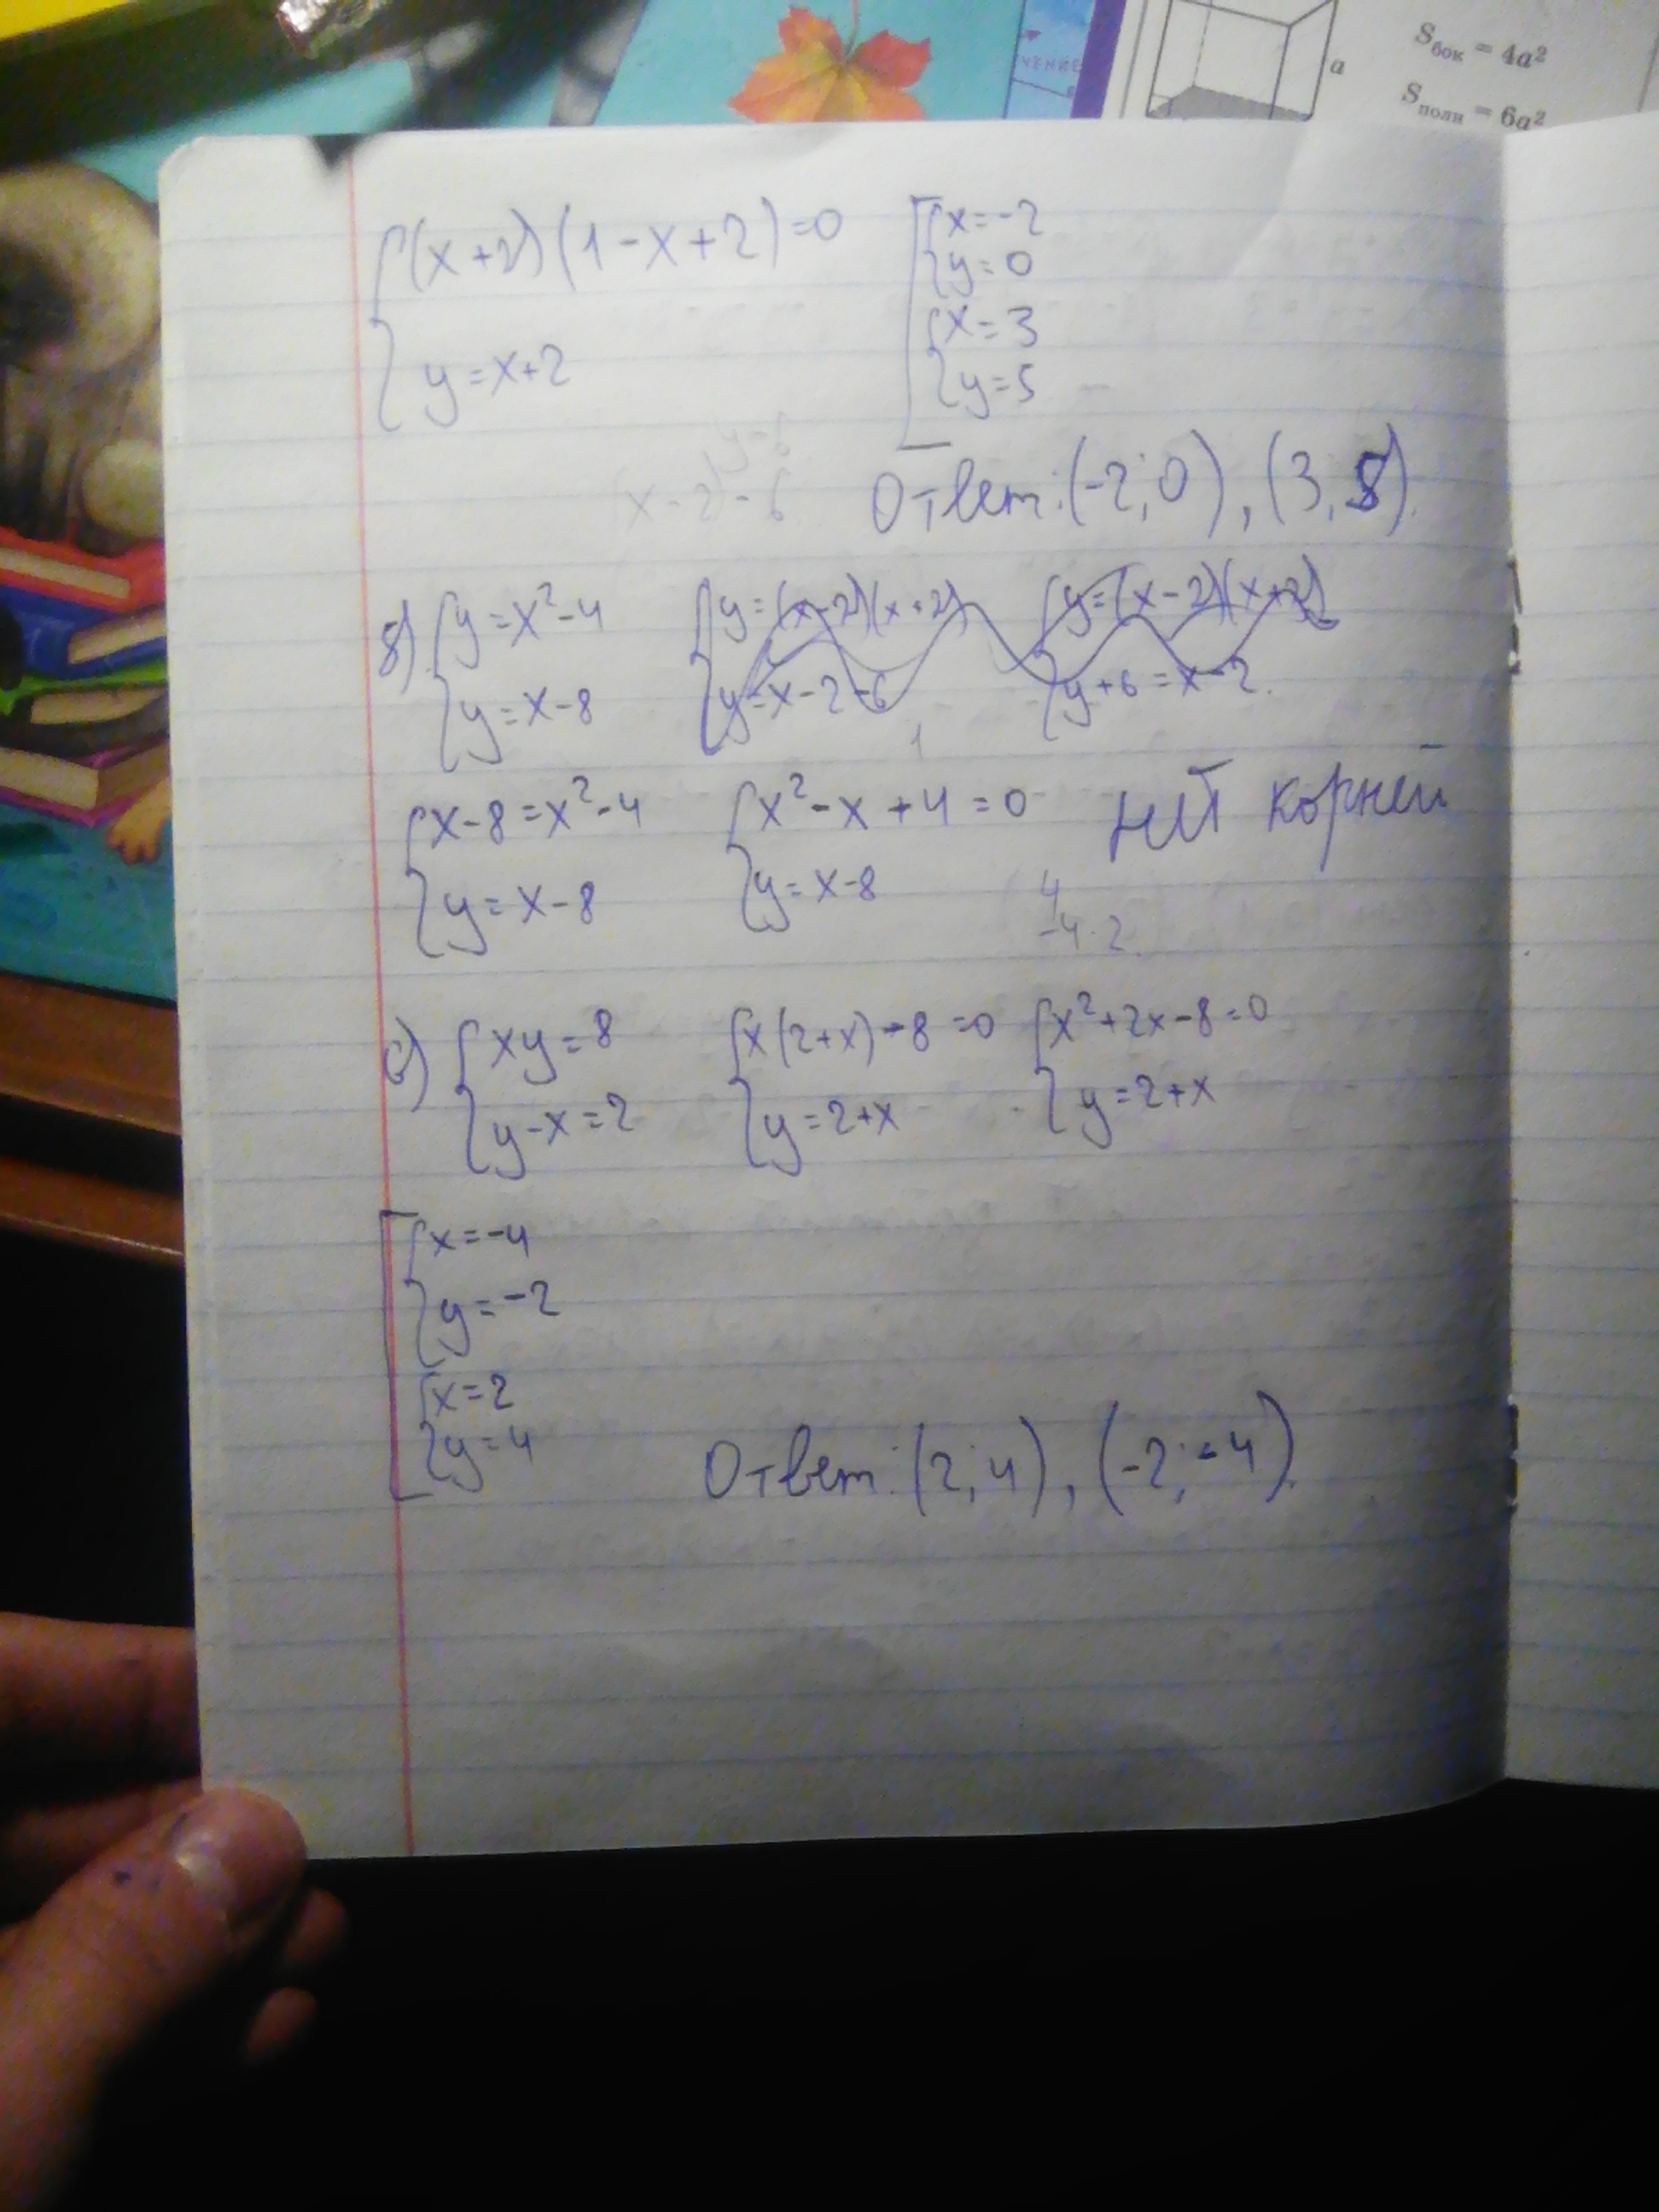 ЧЕНИЕ
a
Sбок = 4a²
Sполн = 6a²
{(x+2)(1-x+2)=0
{y=x+2
[{x=-2
{y=0
{x=3
{y=5
Ответ: (-2;0), (3;5).
б) {y=x²-4
{y=x-8
{y=(x-2)(x+2)
{y=x-2-6
{y=(x-2)(x+2)
{y+6=x-2.
{x-8=x²-4
{y=x-8
{x²-x+4=0
{y=x-8
нет корней
4
-4·2
{xy=8
{y-x=2
{x(2+x)-8=0
{y=2+x
{x²+2x-8=0
{y=2+x
[{x=-4
{y=-2
{x=2
{y=4
Ответ: (2;4), (-2;-4).